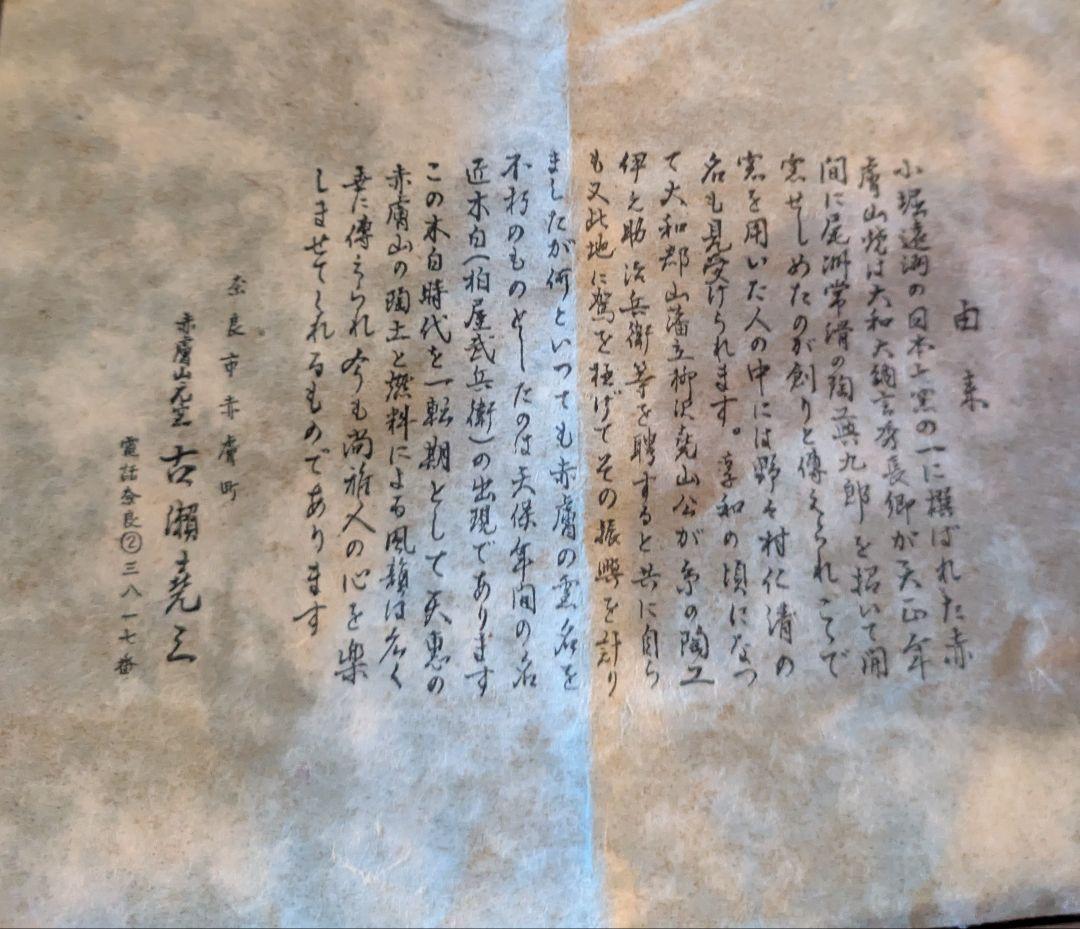 由来
小堀遠洲の日本七窯の一に撰ばれた赤
膚山焼は大和大納言秀長卿が天正年
間に尾洲常滑の陶工與九郎を招いて開
窯せしめたのが創りと傳えられこゝで
窯を用いた人の中には野々村仁清の
名も見受けられます。享和の頃になつ
て大和郡山藩主柳沢堯山公が京の陶工
伊之助治兵衛等を聘すると共に自ら
も又此地に駕を枉げてその振興を計り
ましたが何といつても赤膚の窯名を
不朽のものとしたのは天保年間の名
匠木白(柏屋武兵衛)の出現であります
この木白時代を一転期として天恵の
赤膚山の陶土と燃料による風韻は永く
 傳えられ今も尚雅人の心を楽
しませてくれるものであります
奈良市赤膚町
赤膚山元窯 古瀬堯三
電話奈良②三八一七番